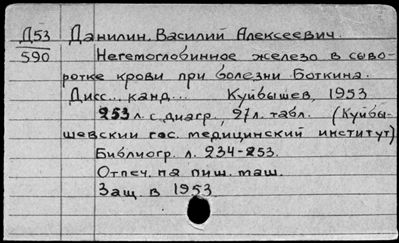 Д53 Данилин, Василий Алексеевич.
590 Негемоглобинное железо в сыво-
ротке крови при болезни Боткина.
Дисс., канд... Куйбышев, 1953
253 л. с диагр., 27 л. табл. (Куйбы-
шевский гос. медицинский институт)
Библиогр. л. 234-253.
Отпеч. на пиш. маш.
Защ. в 1953